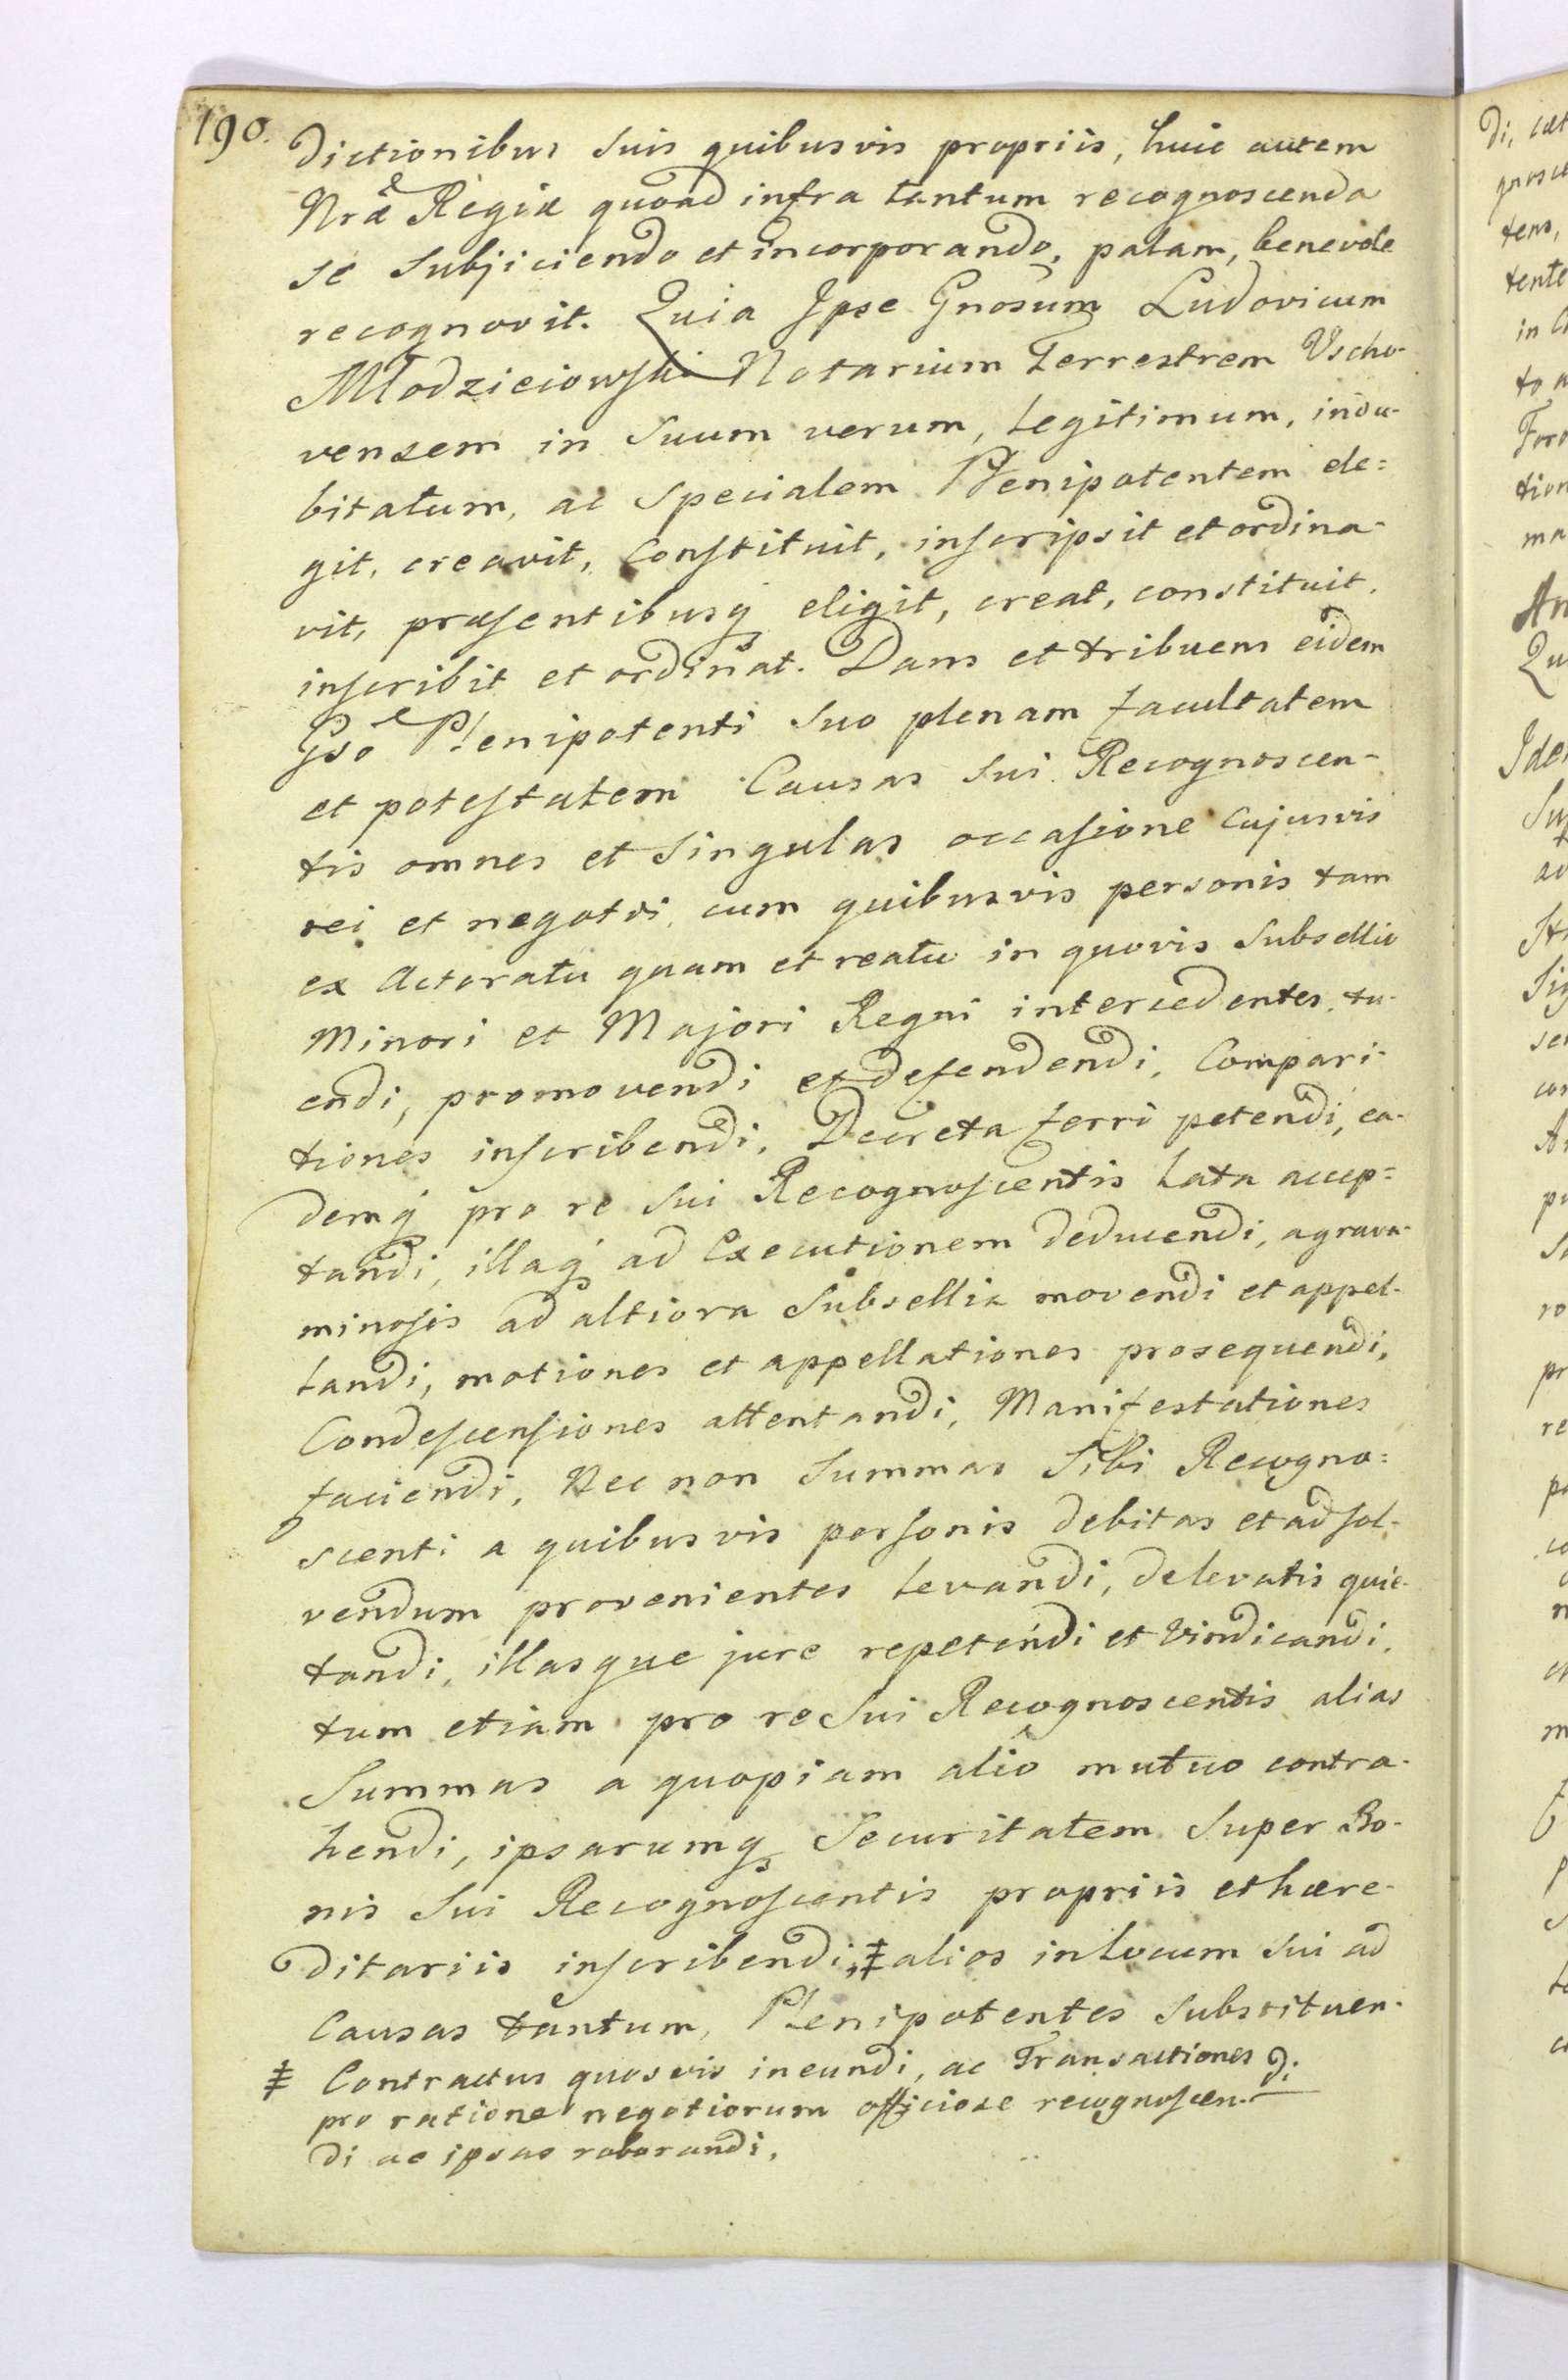 190.
Dictionibus suis quibusvis propriis, huic autem
Nræ Regiæ quoad infra tantum recognoscenda
se subjiciendo et incorporando, palam, benevole
recognovit. Quia Ipse Gnosum Ludovicum
Młodzieiowski Notarium Terrestrem Vscho-
vensem in Suum verum, Legitimum, indu-
bitatum, ac specialem Plenipotentem ele=
git, creavit, Constituit, inscripsit et ordina-
vit, præsentibusq eligit, creat, constituit,
inscribit et ordinat. Dans et tribuens eidem
Gso Plenipotenti suo plenam facultatem
et potestatem Causas sui Recognoscen-
tis omnes et singulas occasione cujusvis
rei et negotii cum quibusvis personis tam
ex Actoratu quam et reatu in quovis Subsellio
Minori et Majori Regni intercedentes, tu-
endi, promovendi et defendendi, Compari-
tiones inscribendi, Decreta ferri petendi, ea-
demq pro re sui Recognoscentis Lata accep=
tandi, illaq ad Executionem deducendi, agrava-
minosis ad altiora Subsellia movendi et appel-
landi, motiones et appellationes prosequendi,
Condescensiones attentandi, Manifestationes
faciendi, Nec non Summas sibi Recogno=
scenti a quibusvis personis debitas et ad sol-
vendum provenientes Levandi, de levatis quie-
tandi, illasque jure repetendi et vindicandi,
tum etiam pro re sui Recognoscentis alias
Summas a quopiam alio mutuo contra-
hendi, ipsarumq Securitatem super Bo-
nis sui Recognoscentis propriis et hære-
ditariis inscribendi, ‡ alios in Locum sui ad
Causas tantum, Plenipotentes substituen-
di
‡ Contractus quosvis ineundi, ac Transactiones
pro ratione negotiorum officiose recognoscen-
di ac ipsas roborandi,